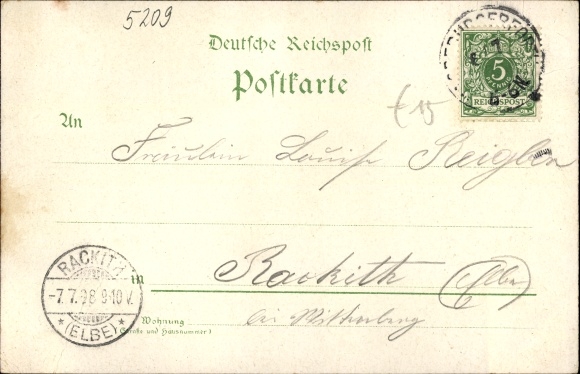 5209
Deutsche Reichspost
Postkarte
5
REICHSPOST
An
Fräulein Louise
£15
RACKITH
-7.7.98 9-10 V.
* (ELBE) *
in Rackith (Elbe)
Wohnung
(Straße und Hausnummer)
bei Wittenberg